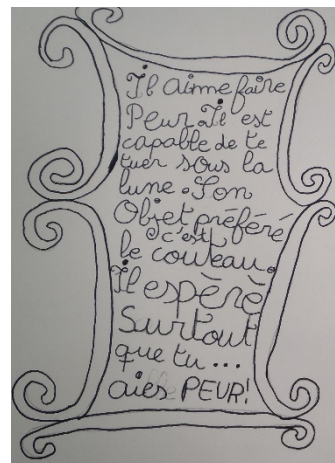 Il aime faire
Peur. Il est
capable de te
tuer sous la
lune. Son
Objet préféré
c'est
le couteau.
Il espère
Surtout
que tu ...
aies PEUR!